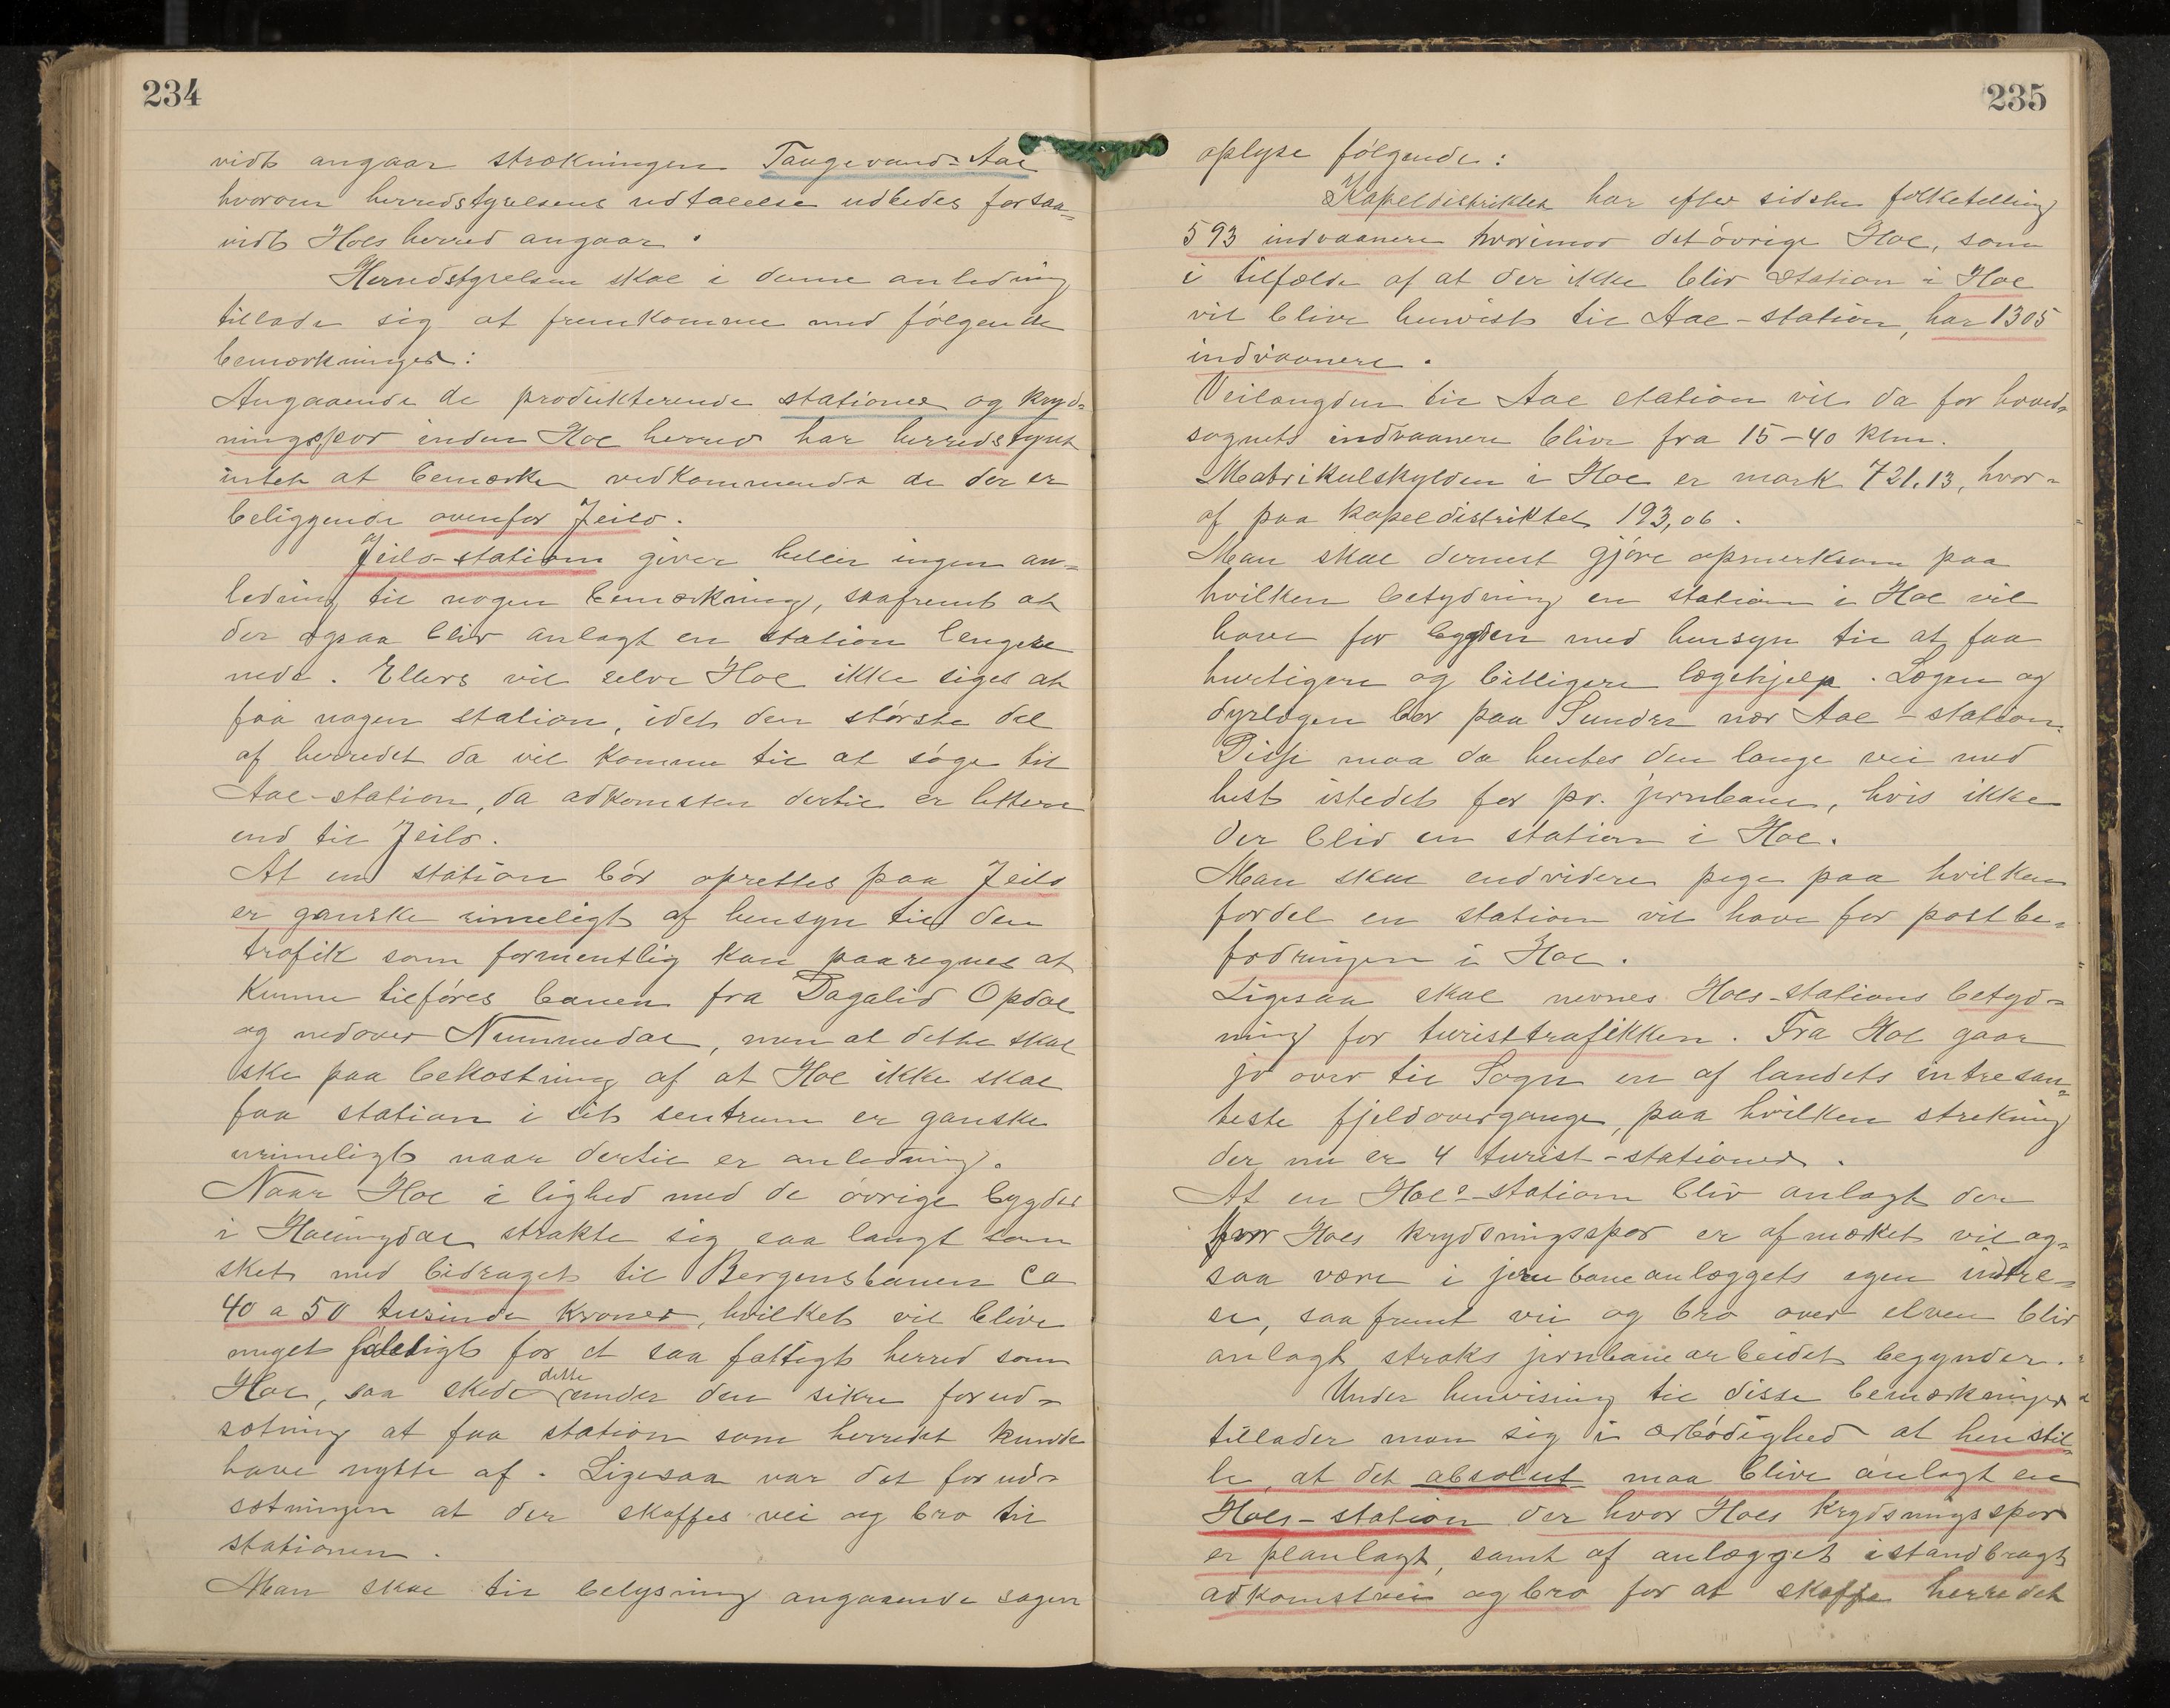 234
vidt angaar strækningen Taugevand-Aal
hvorom herredstyrelsens udtalelse udbedes forsaa-
vidt Hols herred angaar.
Herredstyrelsen skal i denne anledning
tillade sig at fremkomme med følgende
bemærkninger:
Angaaende de produkterende stationer og kryds-
ningsspor inden Hol herred har herredstyret
intet at bemærke vedkommende de der er
beliggende ovenfor Jeilo.
Jeilo-station giver heller ingen an-
ledning til nogen bemærkning, saafremt at
der ogsaa blir anlagt en station lengere
nede. Ellers vil selve Hol ikke siges at
faa nogen station, idet den største del
af herredet da vil komme til at søge til
Aal-station, da adkomsten dertil er lettere
end til Jeilo.
At en station bør oprettes paa Jeilo
er ganske rimeligt af hensyn til den
trafik som formentlig kan paaregnes at
kunne tilføres banen fra Dagalid Opdal
og nedover Nummedal, men at dette skal
ske paa bekostning af at Hol ikke skal
faa station i sit sentrum er ganske
urimeligt naar dertil er anledning.
Naar Hol i lighed med de øvrige bygder
i Hallingdal strakte sig saa langt som
sket med bidraget til Bergensbanen ca
40 a 50 tusinde kroner, hvilket vil blive
meget føleligt for et saa fattigt herred som
Hol, saa skede dette under den sikre forud-
sætning at faa station som herredet kunde
have nytte af. Ligesaa var det forud-
sætningen at der skaffes vei og bro til
stationen.
Man skal til belysning angaaende sagen
235
oplyse følgende:
Kapeldistriktet har efter sidste folketelling
593 indvaanere hvorimod det øvrige Hol, som
i tilfælde af at der ikke blir station i Hol
vil blive henvist til Aal-station, har 1305
indvaanere.
Veilængden til Aal station vil da for hoved-
sognets indvaanere blive fra 15-40 klm.
Matrikulskylden i Hol er mark 721.13, hvor-
af paa kapeldistriktet 193,06.
Man skal dernest gjøre opmerksom paa
hvilken betydning en station i Hol vil
have for bygden med hensyn til at faa
hurtigere og billigere lægehjelp. Lægen og
dyrlægen bor paa Sunder nær Aal-station.
Disse maa da hentes den lange vei med
hest istedet for pr. jernbane, hvis ikke
der blir en station i Hol.
Man skal endvidere pege paa hvilken
fordel en station vil have for postbe-
fodringen i Hol.
Ligesaa skal nevnes Hols-stations betyd-
ning for turisttrafikken. Fra Hol gaar
jo over til Sogn en af landets intresan-
teste fjeldovergange, paa hvilken strekning
der nu er 4 turist-stationer.
At en Hols-station blir anlagt der
hvor Hols krydsningsspor er afmærket vil og-
saa være i jernbaneanlæggets egen intre-
se, saafremt vei og bro over elven blir
anlagt straks jernbanearbeidet begynder.
Under henvisning til disse bemærkninger
tillader man sig i ærbødighed at henstil-
le, at det absolut maa blive anlagt en
Hols-station der hvor Hols krydsningsspor
er planlagt, samt af anlægget istandbragt
adkomstvei og bro for at skaffe herredet